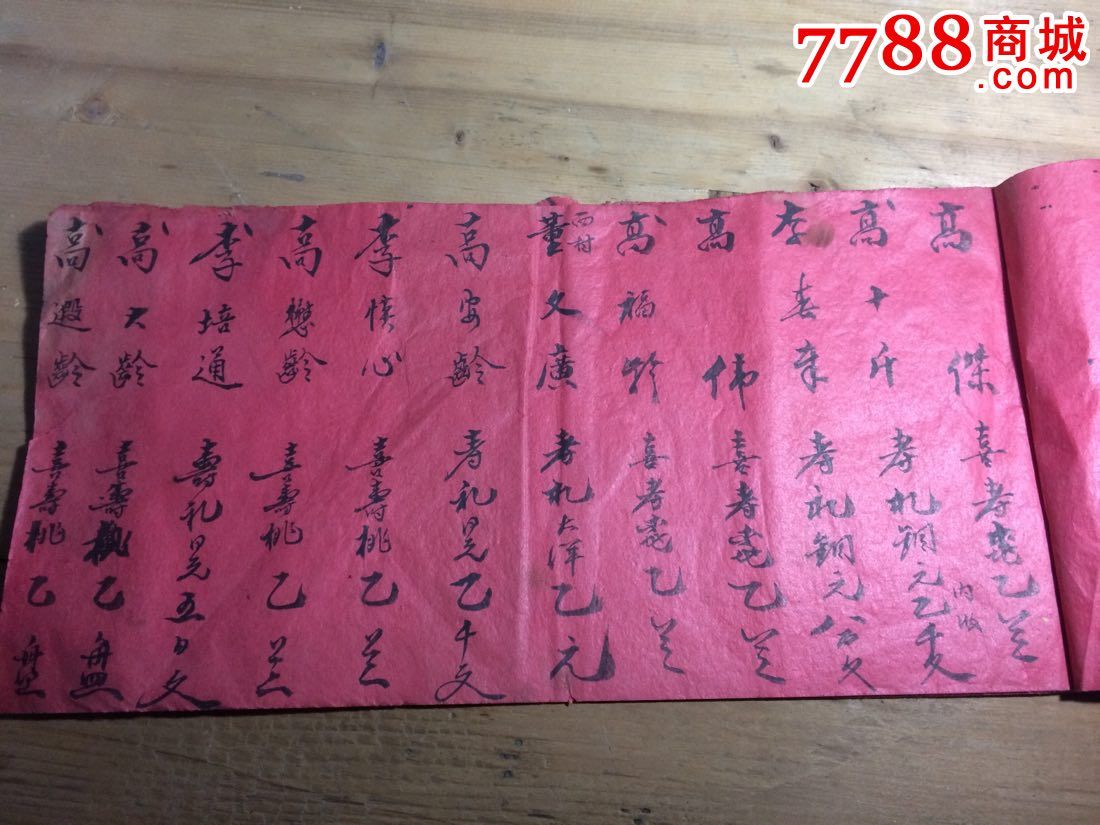 7788商城
.com
高 傑 喜寿桃乙盘
高十斤 寿礼铜元乙千文
内收
李喜来 寿礼铜元八百文
高 伟 喜寿桃乙盘
高福龄 喜寿桃乙盘
西村
董文廣 寿礼大洋乙元
高安齡 寿礼晃乙千文
李慎心 喜壽桃乙盘
高懋齡 喜壽桃乙盘
李培通 壽礼晃五百文
高大齡 喜壽桃乙盤
高遐齡 喜壽桃乙盤